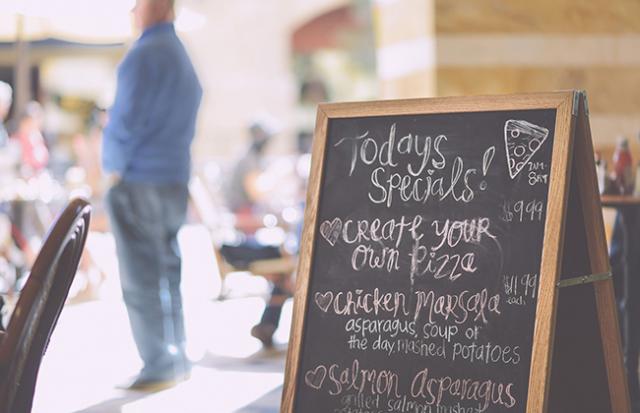 Todays
Specials!
$9.99
Create Your
Own Pizza
$11.99
each
Chicken Marsala
asparagus, soup of
the day, mashed potatoes
Salmon Asparagus
grilled salmon